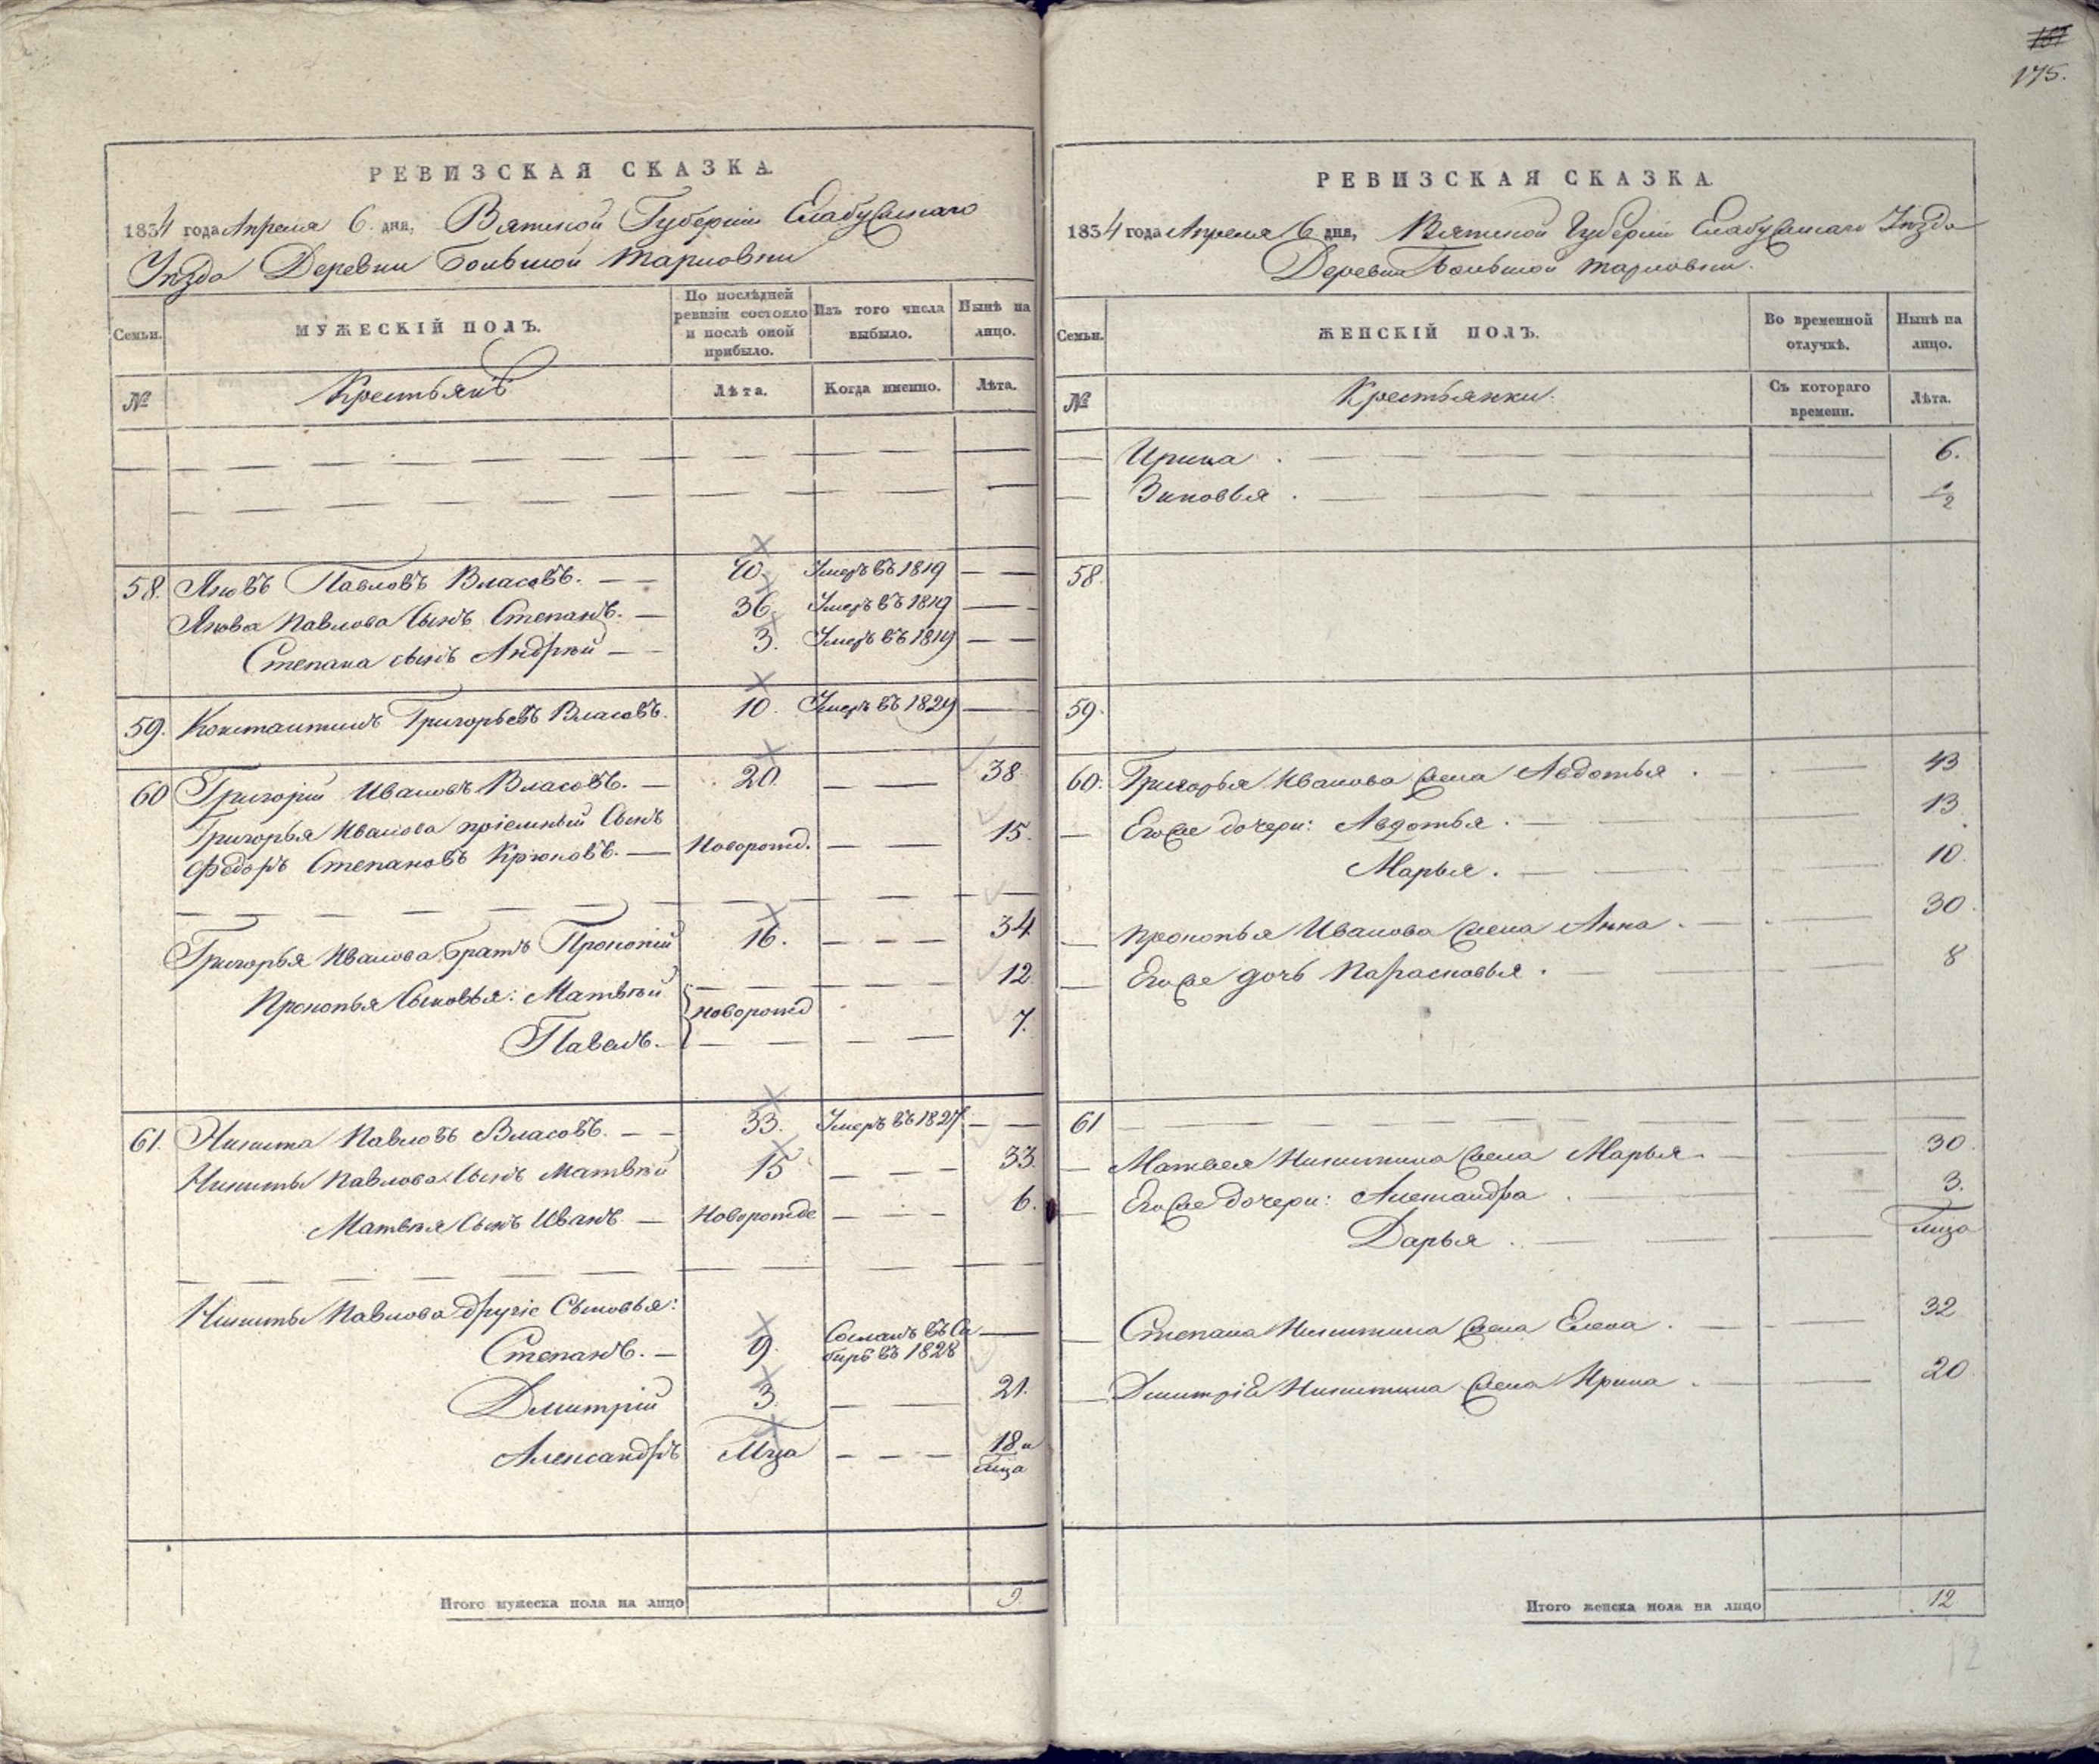 167
175.
РЕВИЗСКАЯ СКАЗКА.
1834 года Апреля 6 дня, Вятской Губернии Елабужскаго
Уезда Деревни Большой Тарловки
Семьи. МУЖЕСКІЙ ПОЛЪ. По послѣдней ревизіи состояло и послѣ оной прибыло. Изъ того числа выбыло. Нынѣ на лицо.
№ Крестьянъ Лѣта. Когда именно. Лѣта.
58. Яковъ Павловъ Власовъ. 70. Умеръ въ 1819
Якова Павлова Сынъ Степанъ. 36. Умеръ въ 1819
Степана сынъ Андрей 3. Умеръ въ 1819
59. Константинъ Григорьевъ Власовъ. 10. Умеръ въ 1829
60 Григорій Ивановъ Власовъ. 20. 38.
Григорья Иванова пріемный Сынъ
Федоръ Степановъ Крюковъ. Новорожд. 15.
Григорья Иванова братъ Прокопій 16. 34
Прокопья Сыновья: Матвей 12.
новорожд
Павелъ. 7.
61. Никита Павловъ Власовъ. 33. Умеръ въ 1827
Никиты Павлова Сынъ Матвей 15 33.
Матвея Сынъ Иванъ. Новорожде 6.
Никиты Павлова другіе Сыновья:
Степанъ. 9. Сосланъ въ Си
бирь въ 1828
Дмитрій 3. 21.
Александръ Мца 18 и
мца
Итого мужеска пола на лицо 9
РЕВИЗСКАЯ СКАЗКА.
1834 года Апреля 6 дня, Вятской Губерніи Елабужскаго Уезда
Деревни Большой Тарловки.
Семьи. ЖЕНСКІЙ ПОЛЪ. Во временной отлучкѣ. Нынѣ на лицо.
№ Крестьянки. Съ котораго времени. Лѣта.
Ирина. 6.
Зиновья. 1/2
58.
59.
60. Григорья Иванова жена Авдотья. 43
Его же дочери: Авдотья. 13.
Марья. 10.
Прокопья Иванова жена Анна. 30.
Его же дочь Парасковья. 8
61
Матвея Никитина жена Марья. 30.
Его же дочери: Александра. 3.
Дарья. мца
Степана Никитина жена Елена. 32
Дмитрія Никитина жена Ирина. 20
Итого женска пола на лицо 12
12